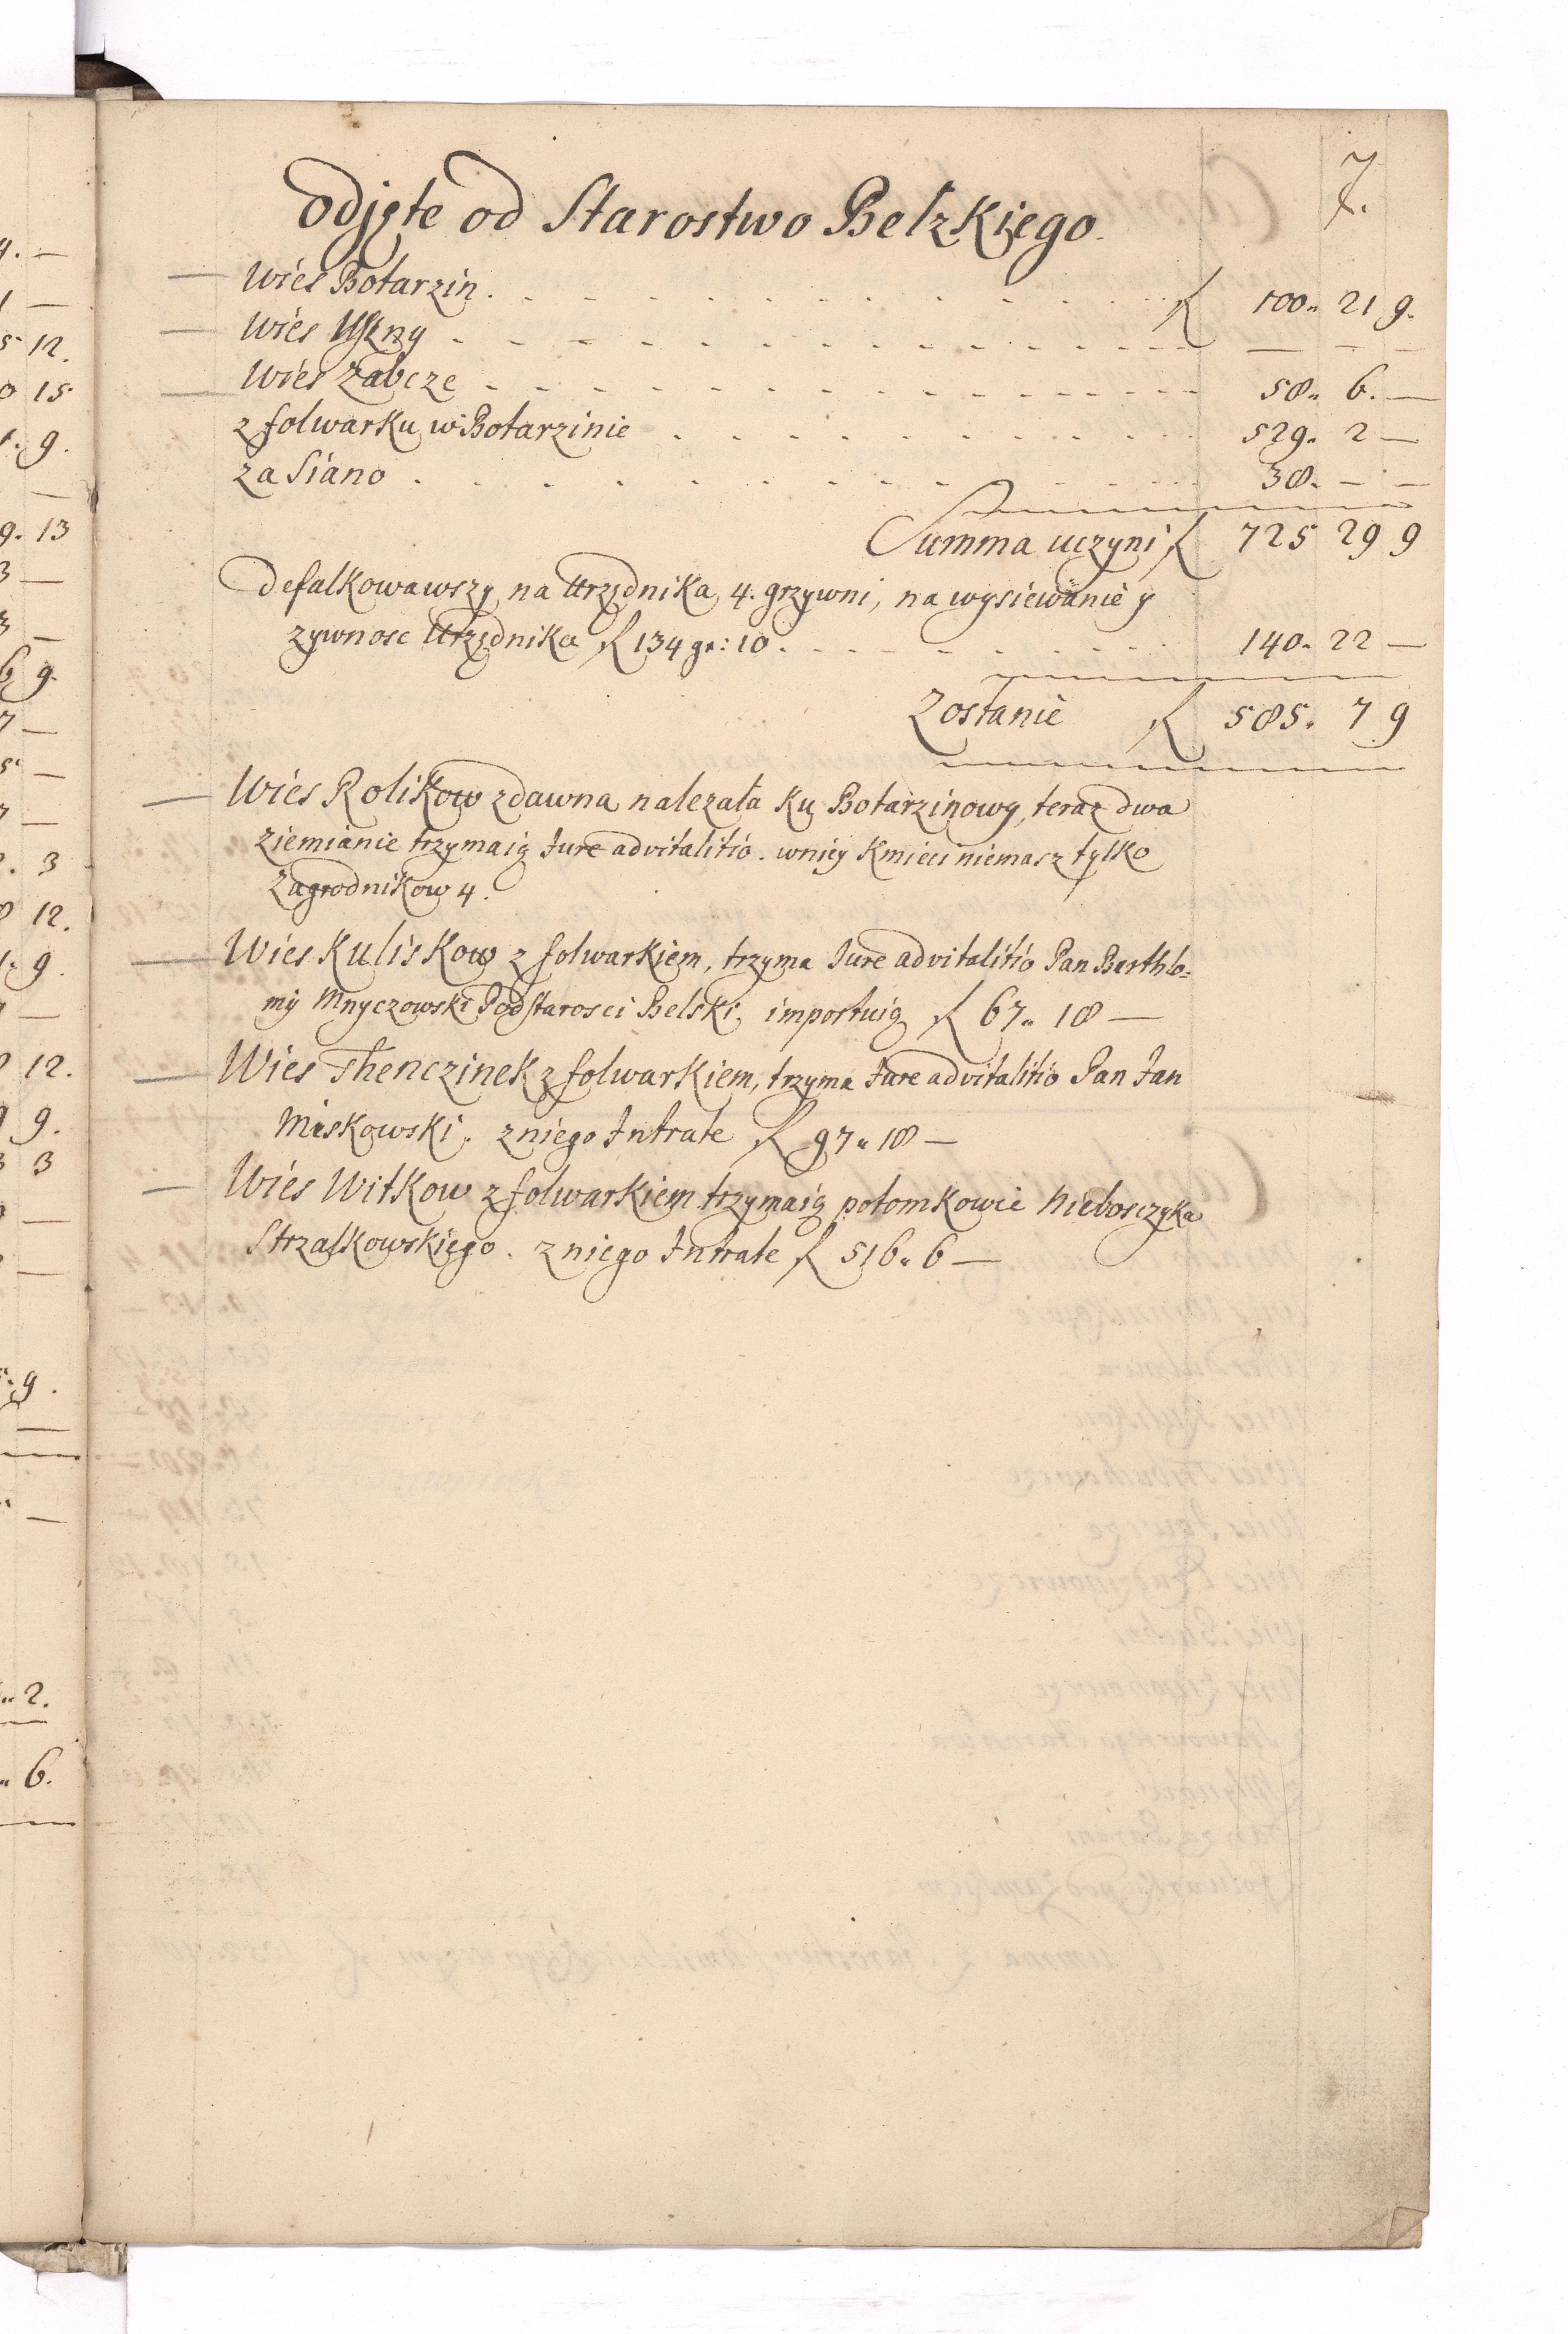 7.
Odjęte od Starostwo Bełzkiego.
Wies Botarzin . . . . fl 100. 21 9.
Wies . . . . — — —
Wies Zabcze . . . . 58. 6. —
z folwarku w Botarzinie . . . . 529. 2 —
za Siano . . . . 38. — —
Summa uczyni fl 725 29 9
Defalkowawszy na Urzędnika 4. grzywni, na wysiewanie y
zywnosc Urzędnika fl 134 gr: 10 . . . . 140. 22 —
Zostanie fl 585. 7 9
Wies Rolikow zdawna nalezała ku Botarzinowy, teraz dwa
ziemianie trzymaią Jure advitalitio. wniey Kmieci niemasz tylko
Zagrodnikow 4.
Wies Kuliskow z folwarkiem, trzyma Jure advitalitio Pan Barthło=
mÿ Mnyczowski Podstarosci Belski. importuią fl 67. 18 —
Wies Thenczinek z folwarkiem, trzyma Jure advitalitio Pan Jan
Miskowski. zniego Intrate fl 97. 18 —
Wies Witkow z folwarkiem trzymaią potomkowie Nieboszczyka
Strzalkowskiego. zniego Intrate fl 516. 6 —